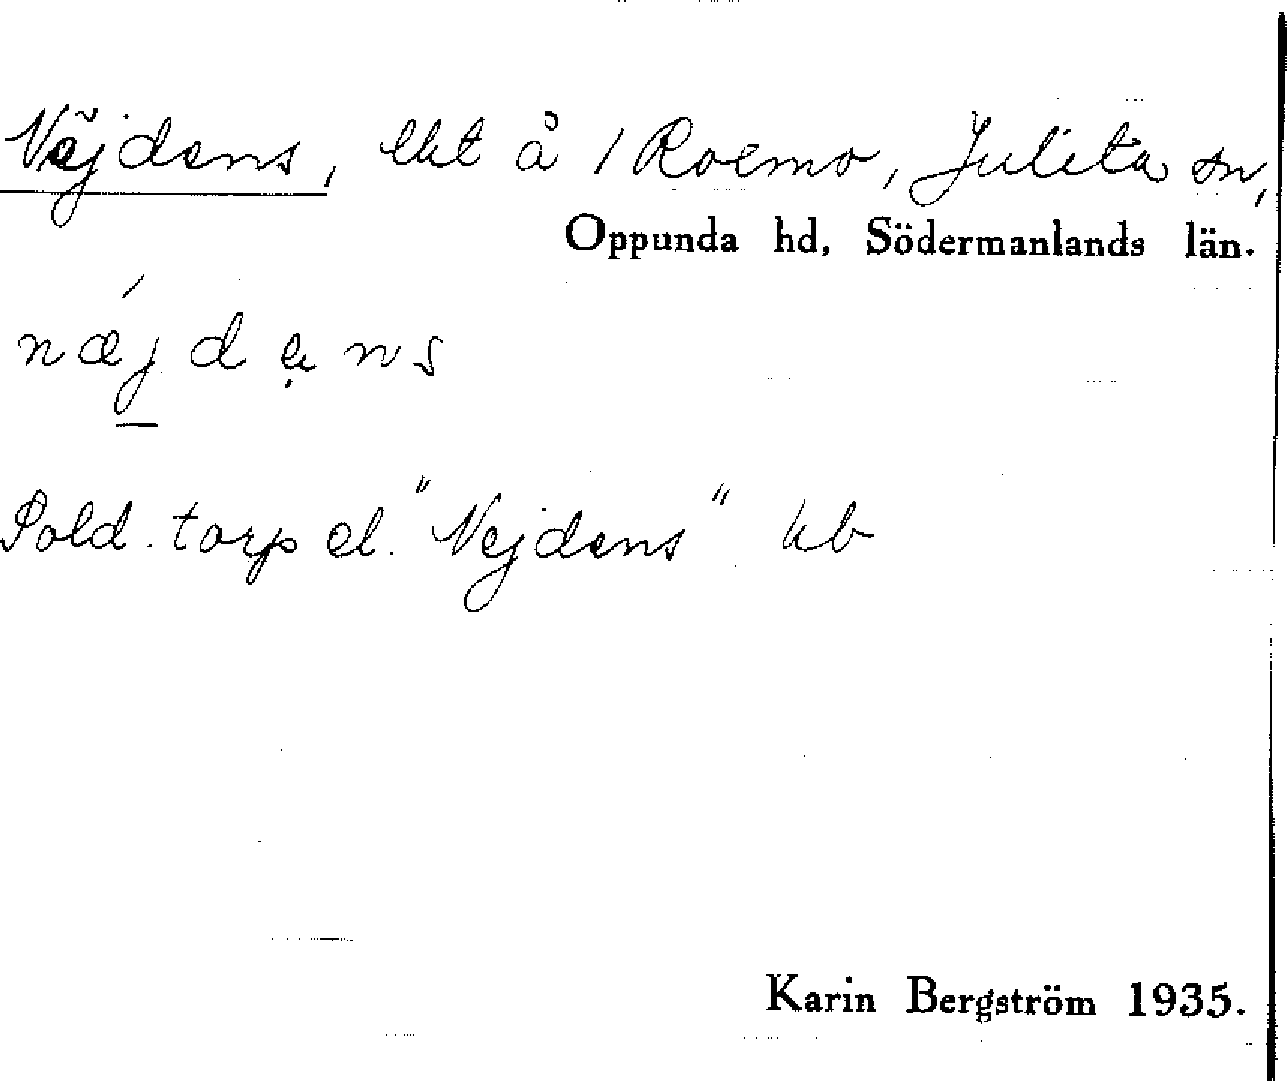 Nejdens, lht å 1 Roemo, Julita sn,
Oppunda hd, Södermanlands län.
næjdens
Sold. torp el. "Nejdens" kb
Karin Bergström 1935.